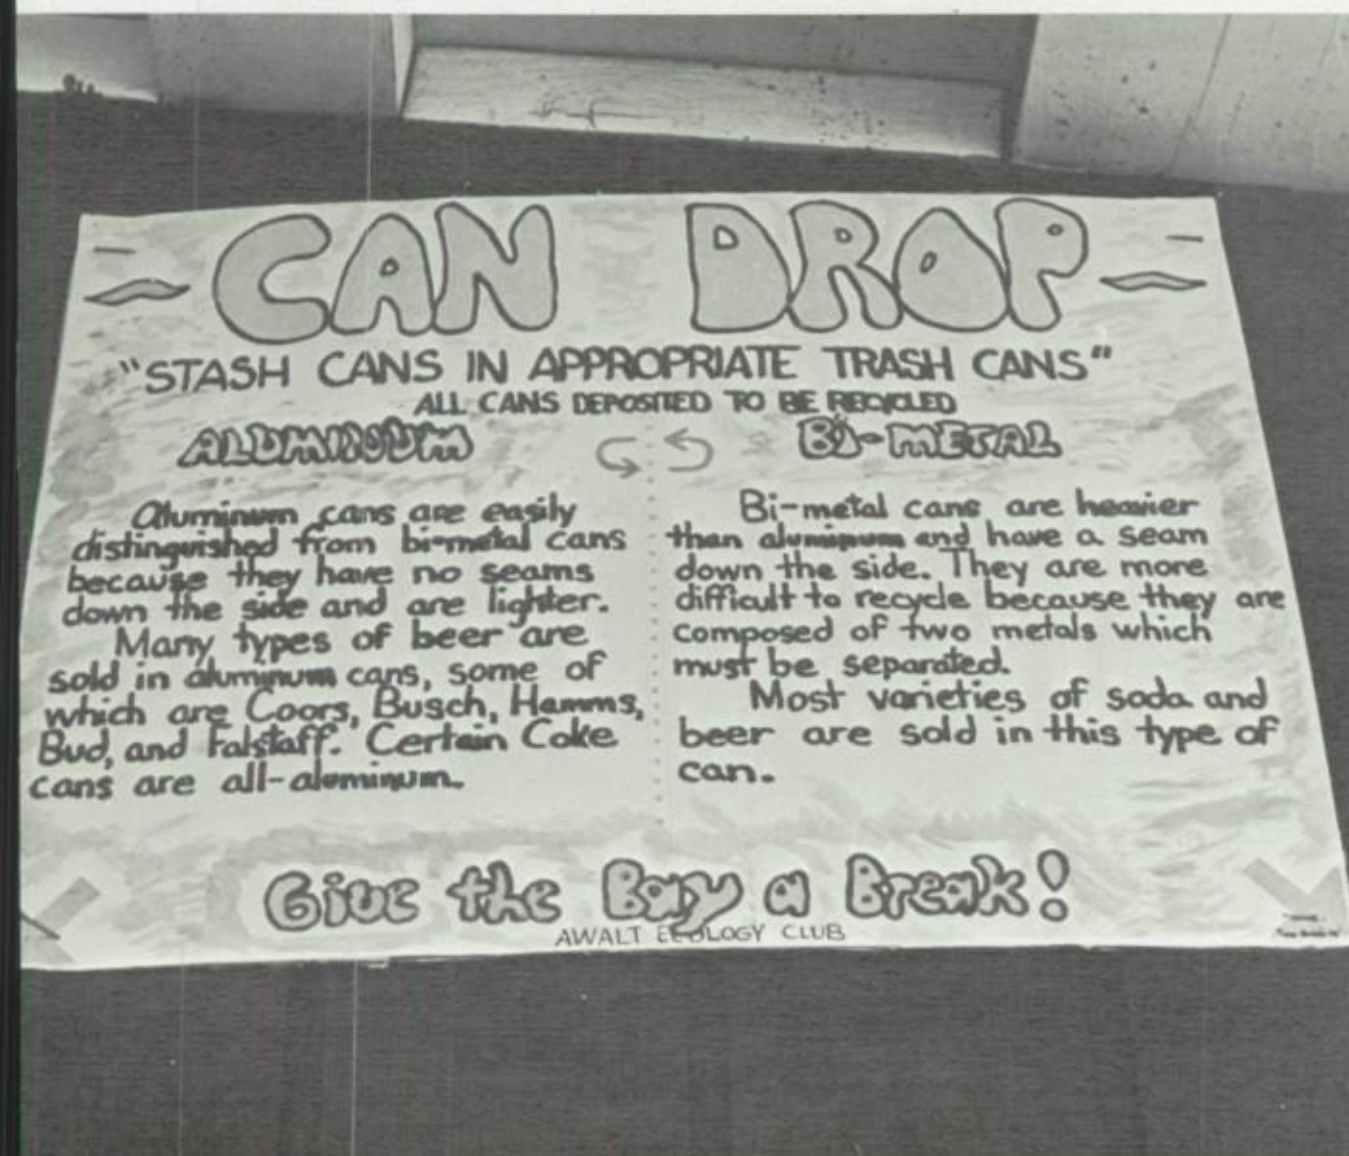 CAN DROP
"STASH CANS IN APPROPRIATE TRASH CANS"
ALL CANS DEPOSITED TO BE RECYCLED
ALUMINUM
Aluminum cans are easily
distinguished from bi-metal cans
because they have no seams
down the side and are lighter.
Many types of beer are
sold in aluminum cans, some of
which are Coors, Busch, Hamms,
Bud, and Falstaff. Certain Coke
cans are all-aluminum.
Bi-METAL
Bi-metal cans are heavier
than aluminum and have a seam
down the side. They are more
difficult to recycle because they are
composed of two metals which
must be separated.
Most varieties of soda and
beer are sold in this type of
can.
Give the Bay a Break!
AWALT ECOLOGY CLUB